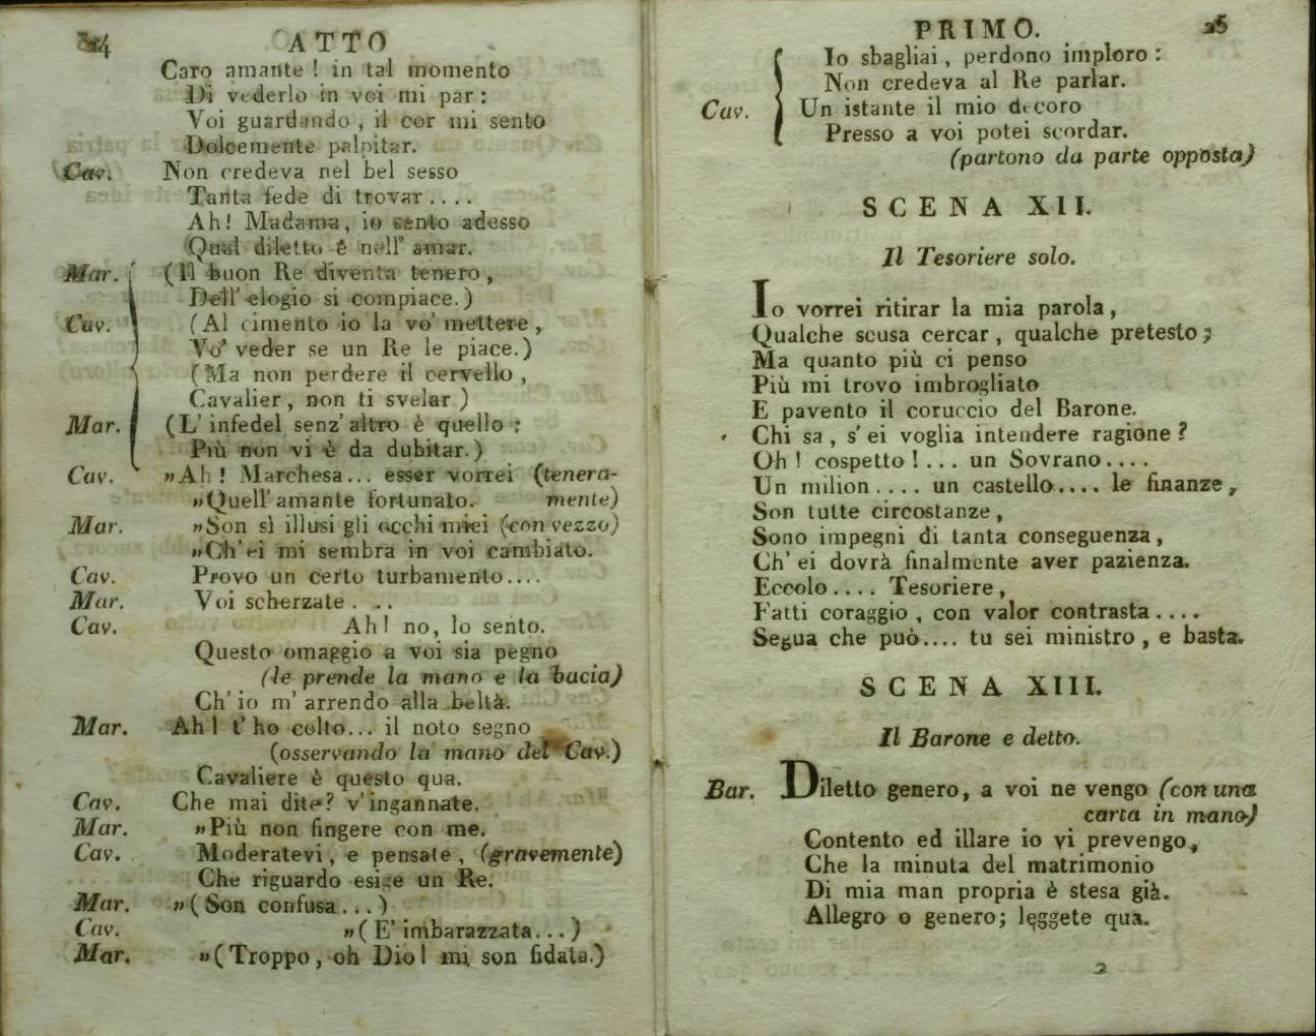 24
ATTO
Caro amante ! in tal momento
Di vederlo in voi mi par :
Voi guardando , il cor mi sento
Dolcemente palpitar.
Cav. Non credeva nel bel sesso
Tanta fede di trovar ....
Ah ! Madama, io sento adesso
Qual diletto è nell' amar.
Mar. (Il buon Re diventa tenero ,
Dell' elogio si compiace.)
Cav. (Al cimento io la vo' mettere ,
Vo' veder se un Re le piace.)
(Ma non perdere il cervello ,
Cavalier , non ti svelar )
Mar. (L' infedel senz' altro è quello :
Più non vi è da dubitar.)
Cav. „Ah ! Marchesa... esser vorrei (tenera-
„Quell' amante fortunato. mente)
Mar. „Son sì illusi gli occhi miei (con vezzo)
„Ch' ei mi sembra in voi cambiato.
Cav. Provo un certo turbamento....
Mar. Voi scherzate . ..
Cav. Ah! no, lo sento.
Questo omaggio a voi sia pegno
(le prende la mano e la bacia)
Ch' io m' arrendo alla beltà.
Mar. Ah! t' ho colto... il noto segno
(osservando la mano del Cav.)
Cavaliere è questo qua.
Cav. Che mai dite? v' ingannate.
Mar. „Più non fingere con me.
Cav. Moderatevi , e pensate , (gravemente)
Che riguardo esige un Re.
Mar. „( Son confusa...)
Cav. „( E' imbarazzata...)
Mar. „(Troppo, oh Dio! mi son fidata.)
PRIMO.
25
Io sbagliai , perdono imploro :
Non credeva al Re parlar.
Cav. Un istante il mio decoro
Presso a voi potei scordar.
(partono da parte opposta)
SCENA XII.
Il Tesoriere solo.
Io vorrei ritirar la mia parola ,
Qualche scusa cercar , qualche pretesto ;
Ma quanto più ci penso
Più mi trovo imbrogliato
E pavento il coruccio del Barone.
Chi sa , s' ei voglia intendere ragione ?
Oh ! cospetto !... un Sovrano....
Un milion .... un castello.... le finanze ,
Son tutte circostanze ,
Sono impegni di tanta conseguenza ,
Ch' ei dovrà finalmente aver pazienza.
Eccolo .... Tesoriere ,
Fatti coraggio , con valor contrasta ....
Segua che può.... tu sei ministro , e basta.
SCENA XIII.
Il Barone e detto.
Bar. Diletto genero, a voi ne vengo (con una
carta in mano)
Contento ed illare io vi prevengo,
Che la minuta del matrimonio
Di mia man propria è stesa già.
Allegro o genero; leggete qua.
2